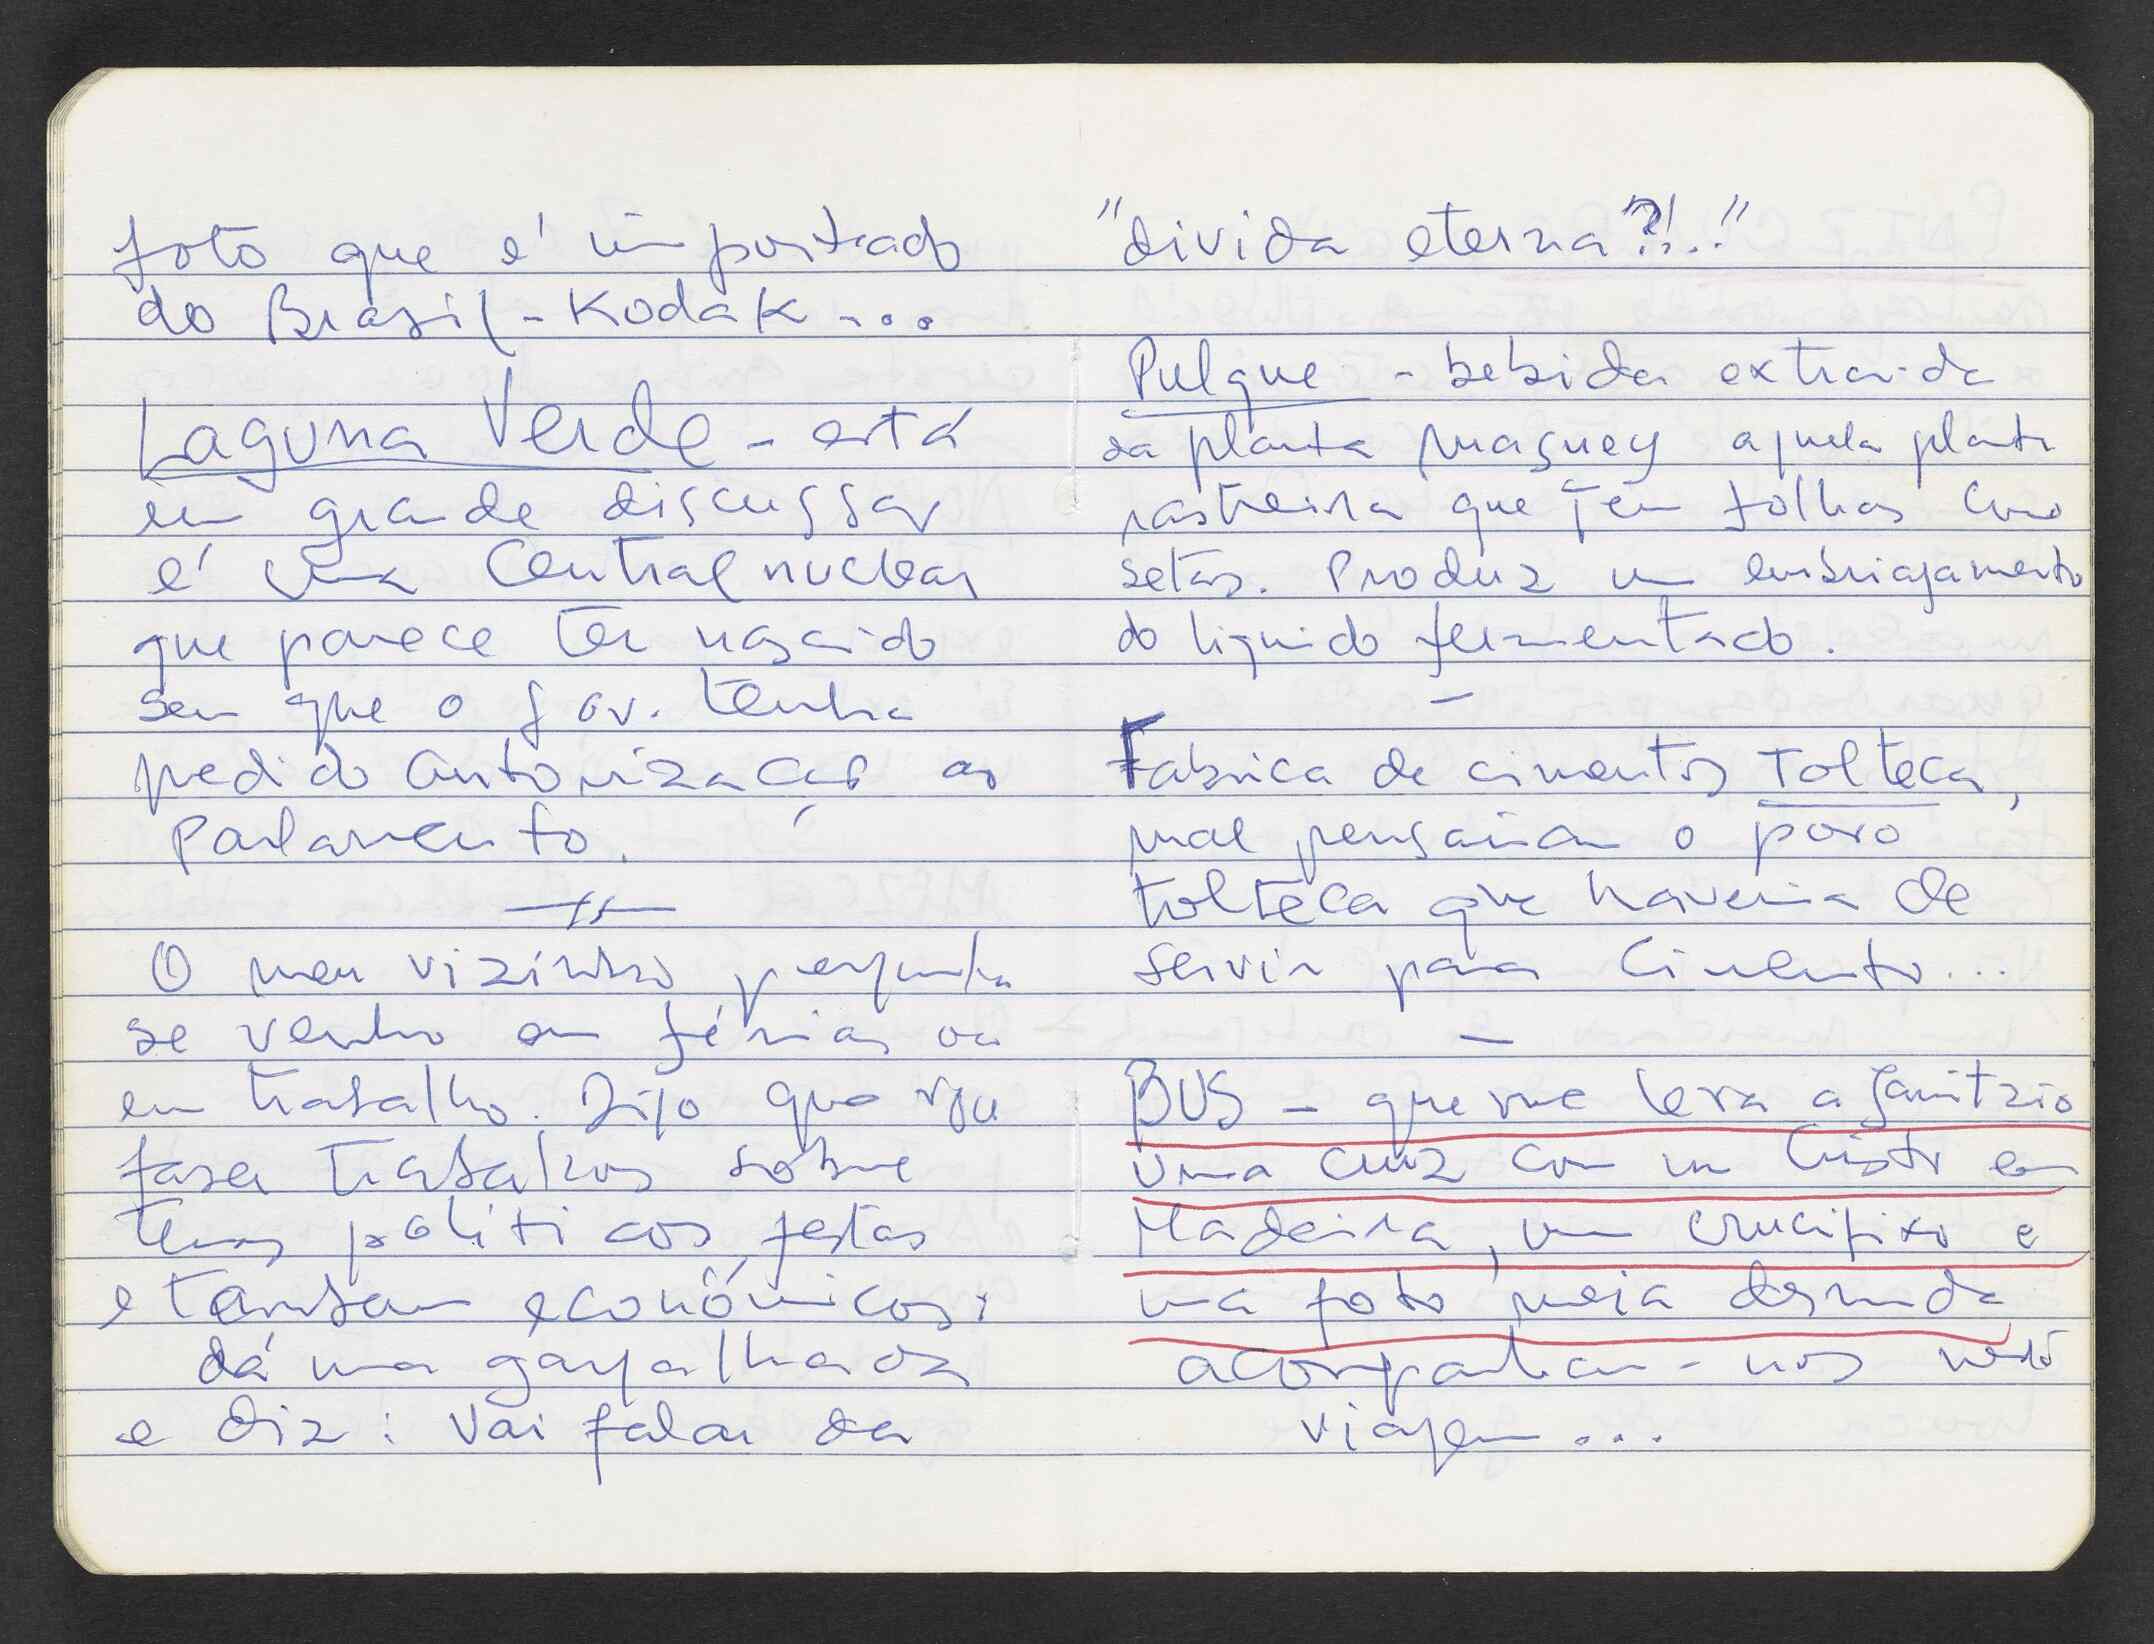 foto que é importado
do Brasil - Kodak - ...
Laguna Verde - está
em grande discussão
é uma Central nuclear
que parece ter nascido
sem que o gov. tenha
pedido autorização ao
Parlamento.
O meu vizinho pergunta
se venho em férias ou
em trabalho. Digo que vou
fazer trabalhos sobre
temas politicos, festas
e tambem económicos:
dá uma gargalhada
e diz: Vai falar da
"divida eterna?!..!"
Pulque - bebida extraida
da planta maguey aquela planta
rastreira que tem folhas como
setas. Produz um embriagamento
do liquido fermentado.
-
Fabrica de cimentos Tolteca,
mal pensariam o povo
tolteca que haveria de
servir para Cimento...
-
BUS - que me leva a Janitzio
uma cruz com um Cristo em
Madeira, um crucifixo e
uma foto meia desnuda
acompanham-nos nesta
viagem...